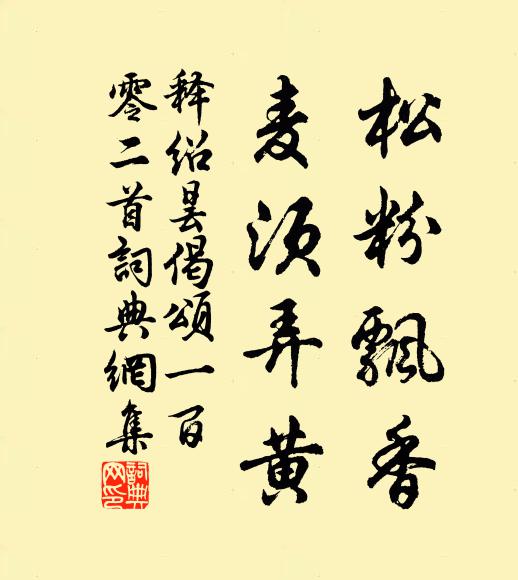 松粉飘香
麦须弄黄
释绍昙偈頌一百
零二首詞典網集
詞典网印